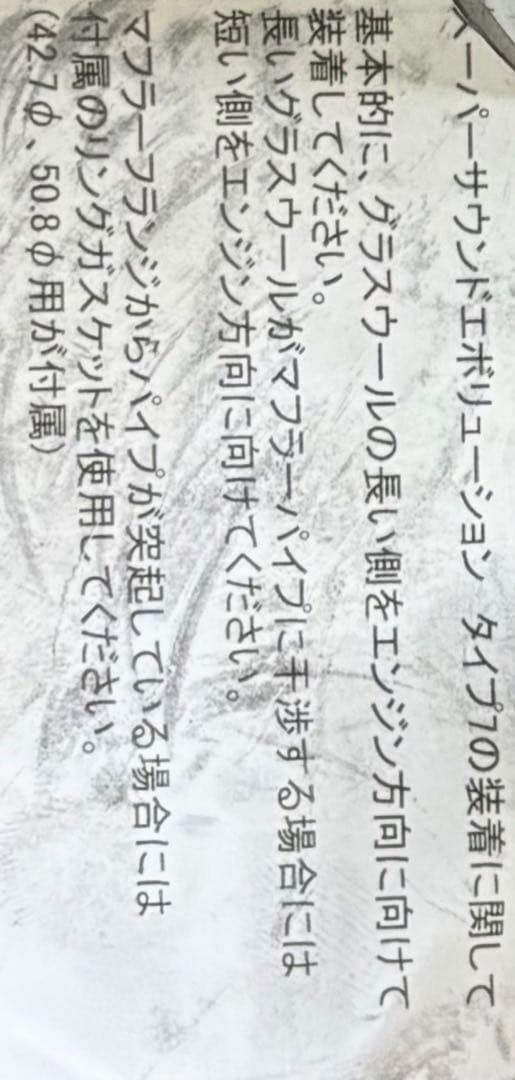 スーパーサウンドエボリューション タイプ7の装着に関して
基本的に、グラスウールの長い側をエンジン方向に向けて
装着してください。
長いグラスウールがマフラーパイプに干渉する場合には
短い側をエンジン方向に向けてください。
マフラーフランジからパイプが突起している場合には
付属のリングガスケットを使用してください。
(42.7φ、50.8φ用が付属)